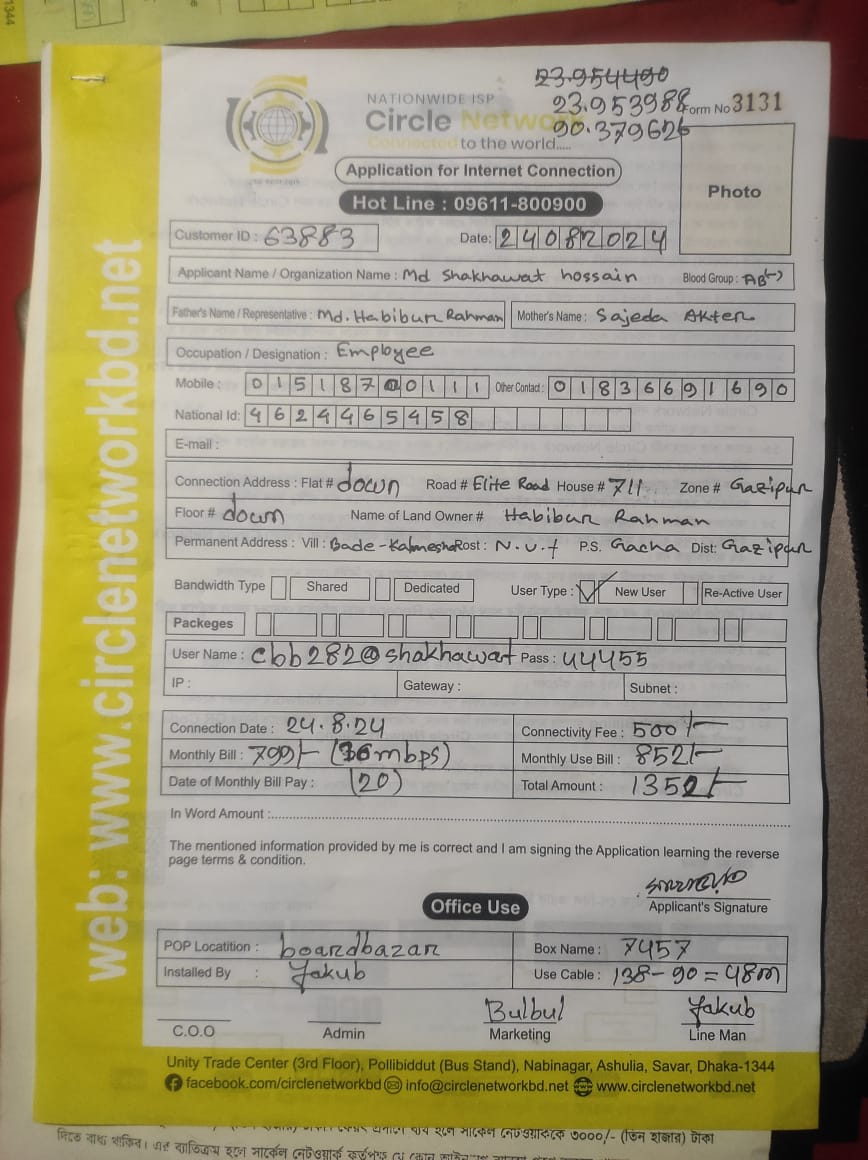 1344
23.954490
NATIONWIDE ISP
23.953988 Form No 3131
Circle Network
90.379626
Connected to the world.....
Application for Internet Connection
Photo
Hot Line : 09611-800900
Customer ID : 63883 Date: 24082024
Applicant Name / Organization Name : Md Shakhawat hossain Blood Group : AB(-)
Father's Name / Representative : Md. Habibur Rahman Mother's Name : Sajeda Akter
Occupation / Designation : Employee
Mobile : 01518700111 Other Contact : 01836691690
National Id: 4624465458
E-mail :
Connection Address : Flat # down Road # Elite Road House # 711 Zone # Gazipur
Floor # down Name of Land Owner # Habibur Rahman
Permanent Address : Vill : Bade-Kalmesha Post : N.U.f P.S. Gacha Dist: Gazipur
Bandwidth Type Shared Dedicated User Type : New User Re-Active User
Packeges
User Name : cbb282@shakhawat Pass : 44455
IP : Gateway : Subnet :
Connection Date : 24.8.24 Connectivity Fee : 500/-
Monthly Bill : 799/- (36mbps) Monthly Use Bill : 852/-
Date of Monthly Bill Pay : (20) Total Amount : 1352/-
In Word Amount :
The mentioned information provided by me is correct and I am signing the Application learning the reverse
page terms & condition.
Applicant's Signature
Office Use
POP Locatition : boardbazar Box Name : 7457
Installed By : Yakub Use Cable : 138-90=48m
Bulbul Yakub
C.O.O Admin Marketing Line Man
Unity Trade Center (3rd Floor), Pollibiddut (Bus Stand), Nabinagar, Ashulia, Savar, Dhaka-1344
facebook.com/circlenetworkbd info@circlenetworkbd.net www.circlenetworkbd.net
web: www.circlenetworkbd.net
দিতে বাধ্য থাকিব। এর ব্যতিক্রম হলে সার্কেল নেটওয়ার্ককে ৩০০০/- (তিন হাজার) টাকা